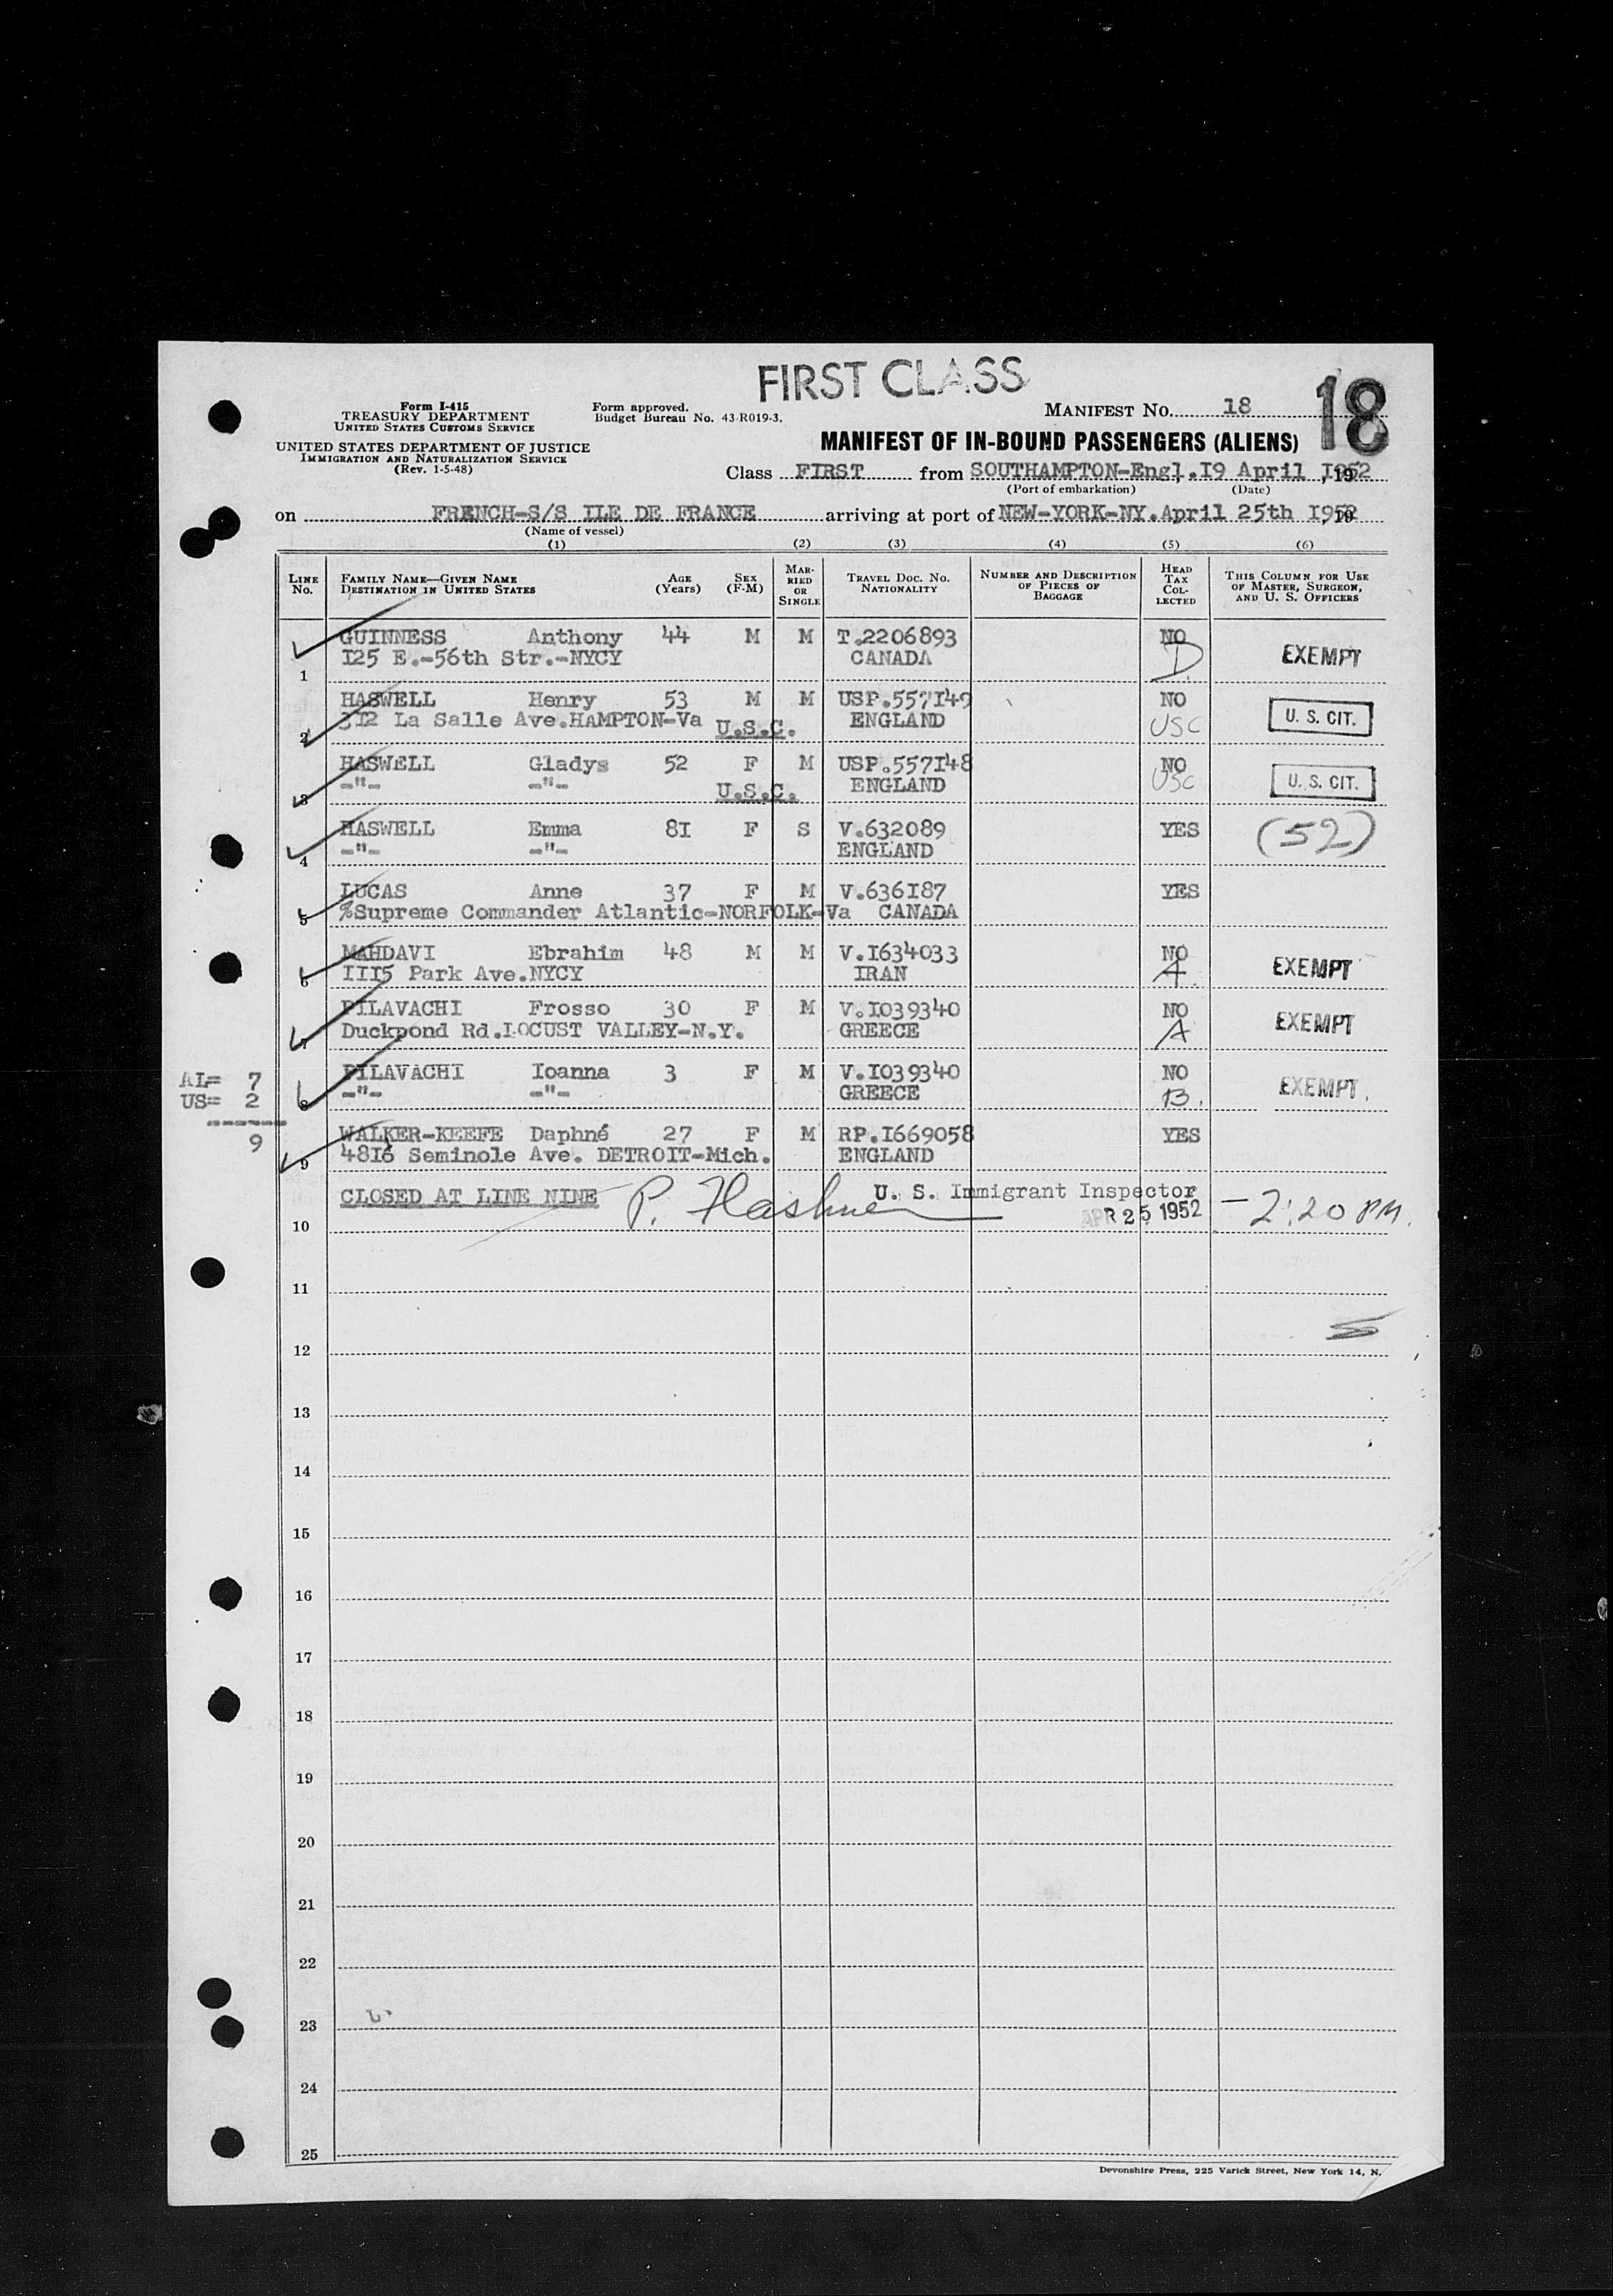 FIRST CLASS
Form I-415
TREASURY DEPARTMENT
UNITED STATES CUSTOMS SERVICE
UNITED STATES DEPARTMENT OF JUSTICE
IMMIGRATION AND NATURALIZATION SERVICE
(Rev. 1-5-48)
Form approved.
Budget Bureau No. 43-R019-3.
MANIFEST NO. 18
18
MANIFEST OF IN-BOUND PASSENGERS (ALIENS)
Class FIRST from SOUTHAMPTON-Engl. I9 April , I952
(Port of embarkation) (Date)
on FRENCH-S/S ILE DE FRANCE arriving at port of NEW-YORK-NY. April 25th I952
(Name of vessel)
(1) (2) (3) (4) (5) (6)
LINE NO. FAMILY NAME—GIVEN NAME DESTINATION IN UNITED STATES AGE (Years) SEX (F-M) MARRIED OR SINGLE TRAVEL DOC. NO. NATIONALITY NUMBER AND DESCRIPTION OF PIECES OF BAGGAGE HEAD TAX COLLECTED THIS COLUMN FOR USE OF MASTER, SURGEON, AND U. S. OFFICERS
GUINNESS Anthony 44 M M T.2206893 NO
1 I25 E.-56th Str.-NYCY CANADA D. EXEMPT
HASWELL Henry 53 M M USP.557I49 NO
2 3I2 La Salle Ave.HAMPTON-Va U.S.C. ENGLAND USC U. S. CIT.
HASWELL Gladys 52 F M USP.557I48 NO
3 -"- -"- U.S.C. ENGLAND USC U. S. CIT.
HASWELL Emma 8I F S V.632089 YES (52)
4 -"- -"- ENGLAND
LUCAS Anne 37 F M V.636I87 YES
5 %Supreme Commander Atlantic-NORFOLK-Va CANADA
MAHDAVI Ebrahim 48 M M V.I634033 NO
6 III5 Park Ave.NYCY IRAN A. EXEMPT
PILAVACHI Frosso 30 F M V.I039340 NO
7 Duckpond Rd.LOCUST VALLEY-N.Y. GREECE A EXEMPT
PILAVACHI Ioanna 3 F M V.I039340 NO
8 -"- -"- GREECE B. EXEMPT.
AL= 7
US= 2
9
WALKER-KEEFE Daphné 27 F M RP.I669058 YES
9 48I6 Seminole Ave. DETROIT-Mich. ENGLAND
CLOSED AT LINE NINE P. U. S. Immigrant Inspector
10 APR 25 1952 - 2:20 PM.
11
12
13
14
15
16
17
18
19
20
21
22
23
24
25
Devonshire Press, 225 Varick Street, New York 14, N.